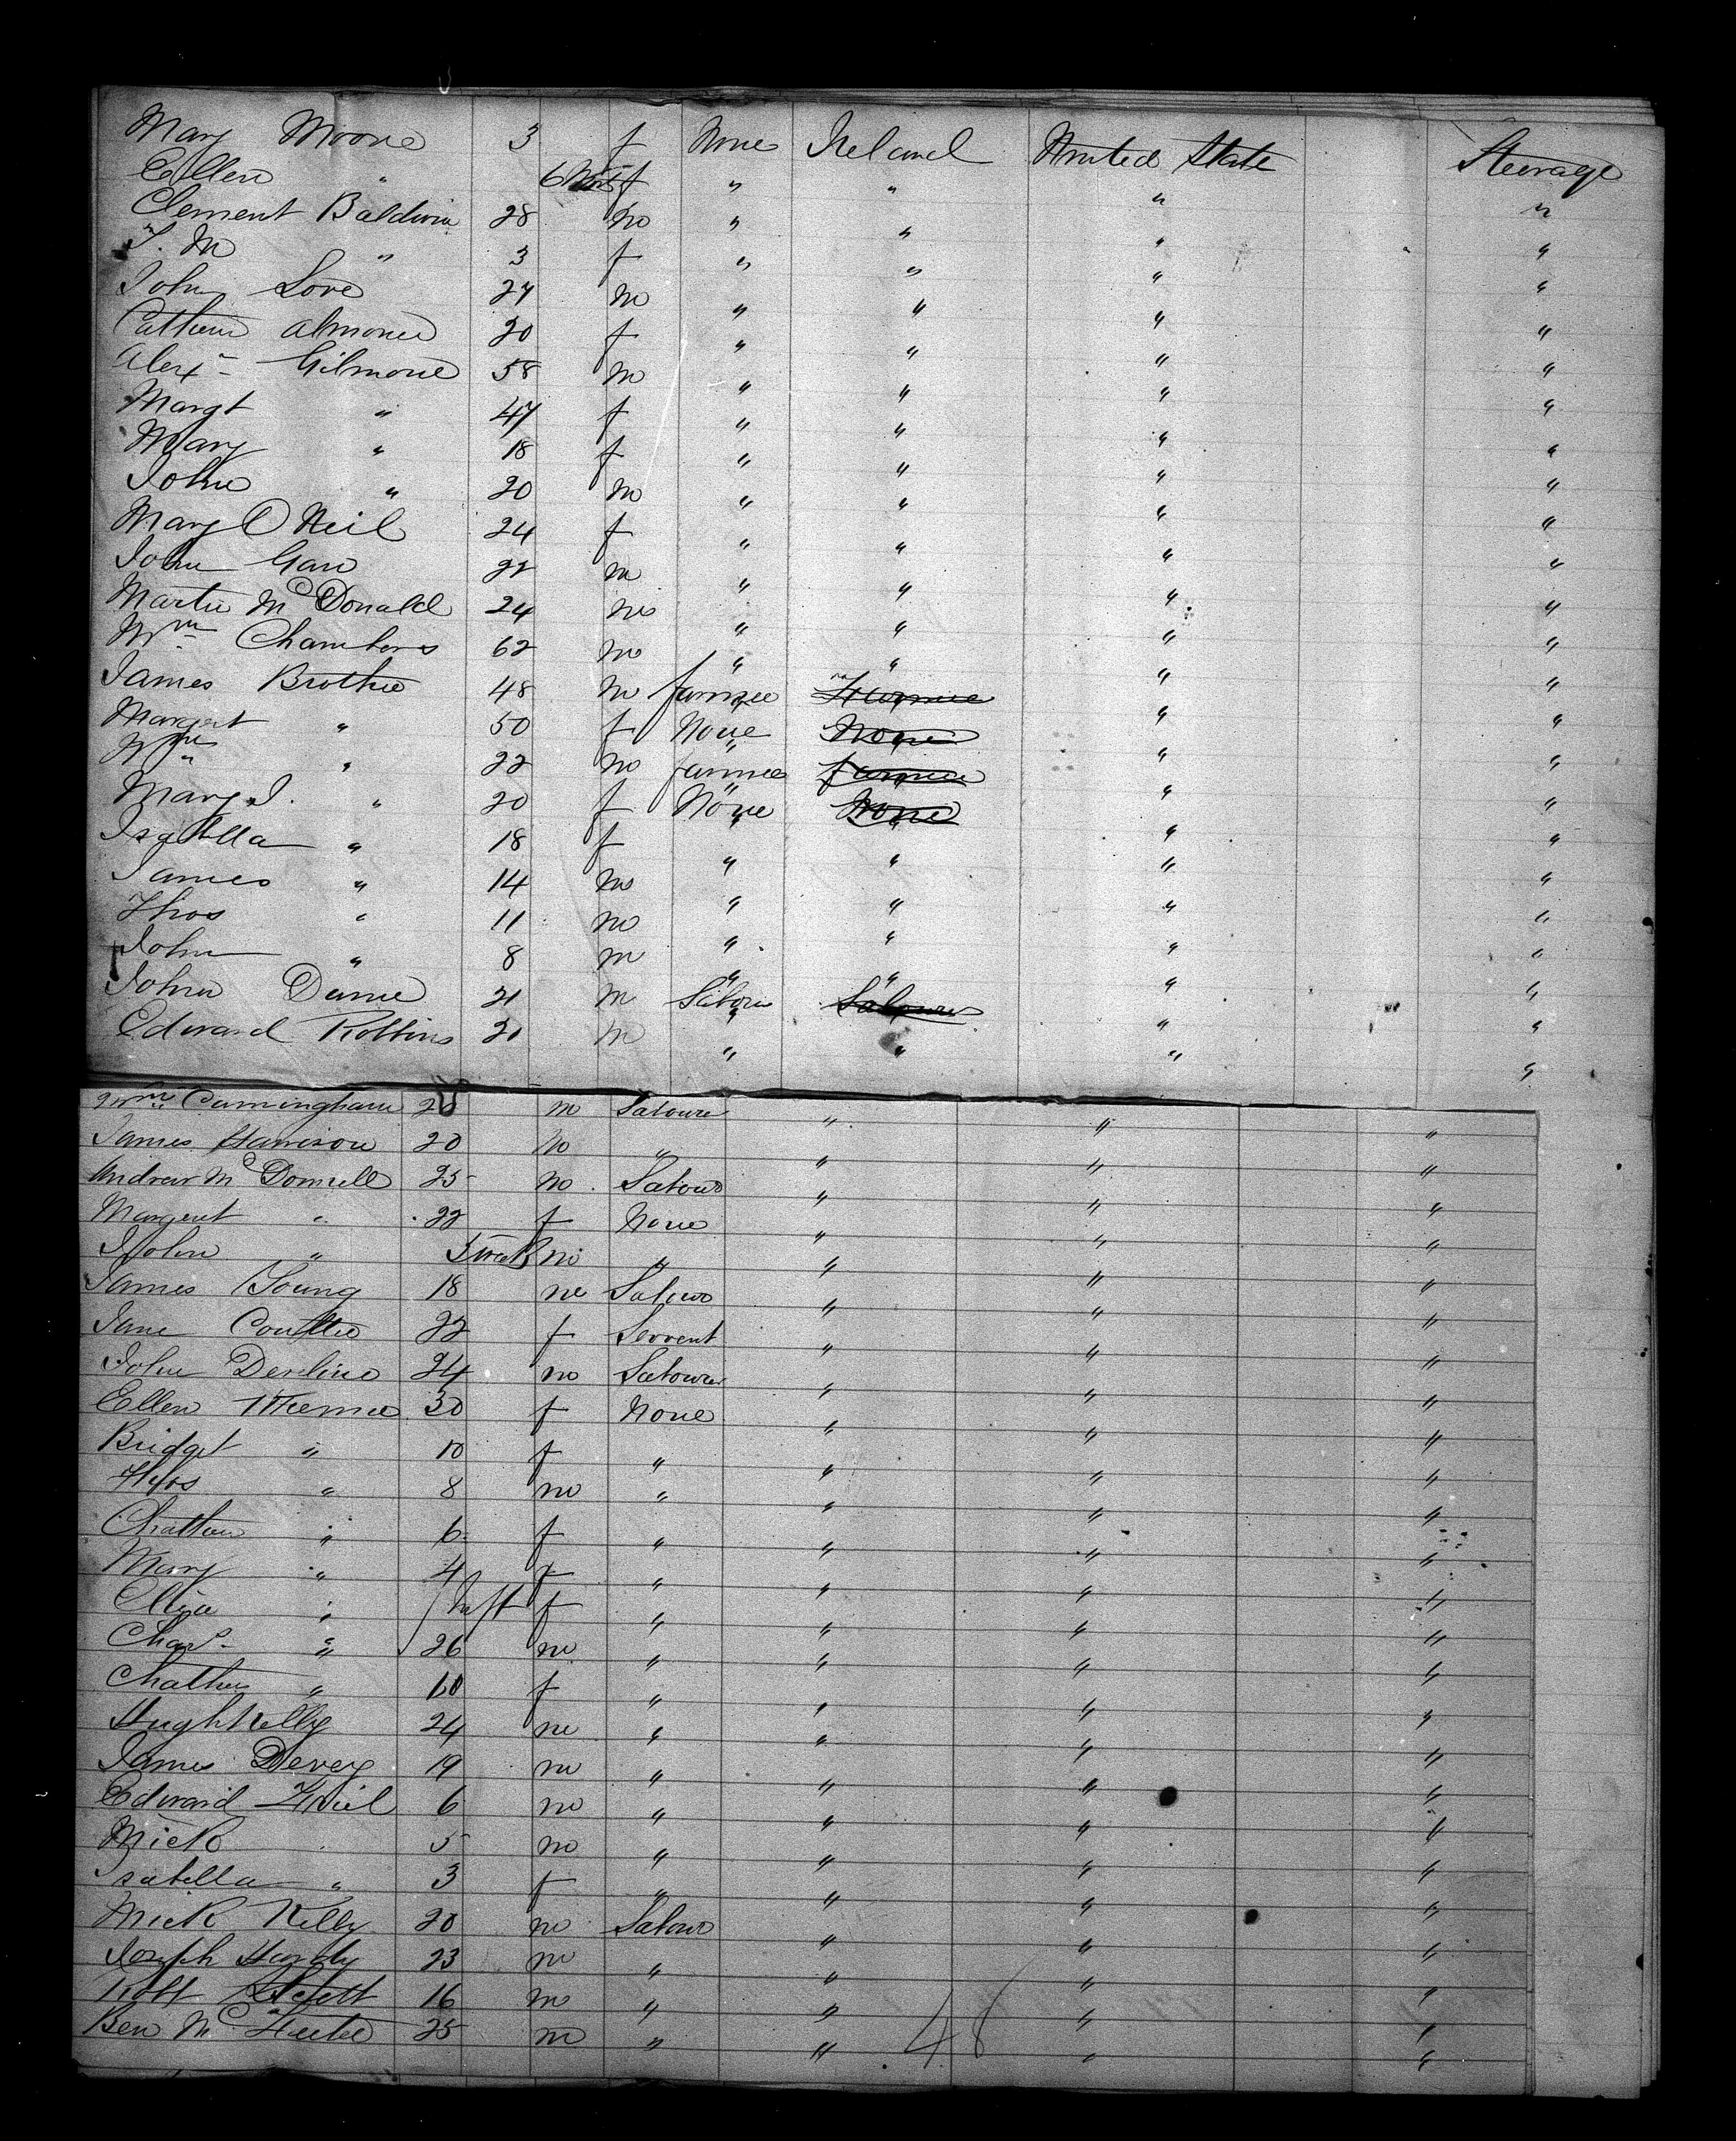 Mary Moore 3 f None Ireland United State Steerage
Ellen " 6 Mos f " " " "
Clement Baldwin 28 m " " " "
T. M " 3 f " " " "
John Love 24 m " " " "
Cathern 20 f " " " "
Alexr Gilmore 58 m " " " "
Margt " 47 f " " " "
Mary " 18 f " " " "
John " 20 m " " " "
Mary O Neil 24 f " " " "
John 22 m " " " "
Martin McDonald 24 m " " " "
Wm Chambers 62 m " " " "
James Brothie 48 m farmer Farmer " "
Margert " 50 f None None " "
Wm " 22 m farmer farmer " "
Mary J. " 20 f None None " "
Isabella " 18 f " " " "
James " 14 m " " " "
Thos " 11 m " " " "
John " 8 m " " " "
John 21 m Labour Labourer " "
Edward Robbins 20 m " " " "
Wm Cunningham 20 m Labourer " " "
James Harrison 20 m " " " "
Andrew McDonnell 25 m Labour " " "
Margert " 22 f None " " "
John " 3 week m " " " "
James Young 18 m Labour " " "
Jane 22 f Servent " " "
John Devline 24 m Labourer " " "
Ellen 30 f None " " "
Bridget " 10 f " " " "
Thos " 8 m " " " "
" 6 f " " " "
Mary " 4 f " " " "
Eliza " Inft f " " " "
Chas " 26 m " " " "
" 60 f " " " "
Hugh Kelly 24 m " " " "
James Devey 19 m " " " "
Edward Friel 6 m " " " "
Mick 5 m " " " "
Isabella " 3 f " " " "
Mick Kelly 20 m Labour " " "
Joseph Hardy 23 m " " " "
Robt 16 m " " " "
Ben Mc 25 m " " " "
48